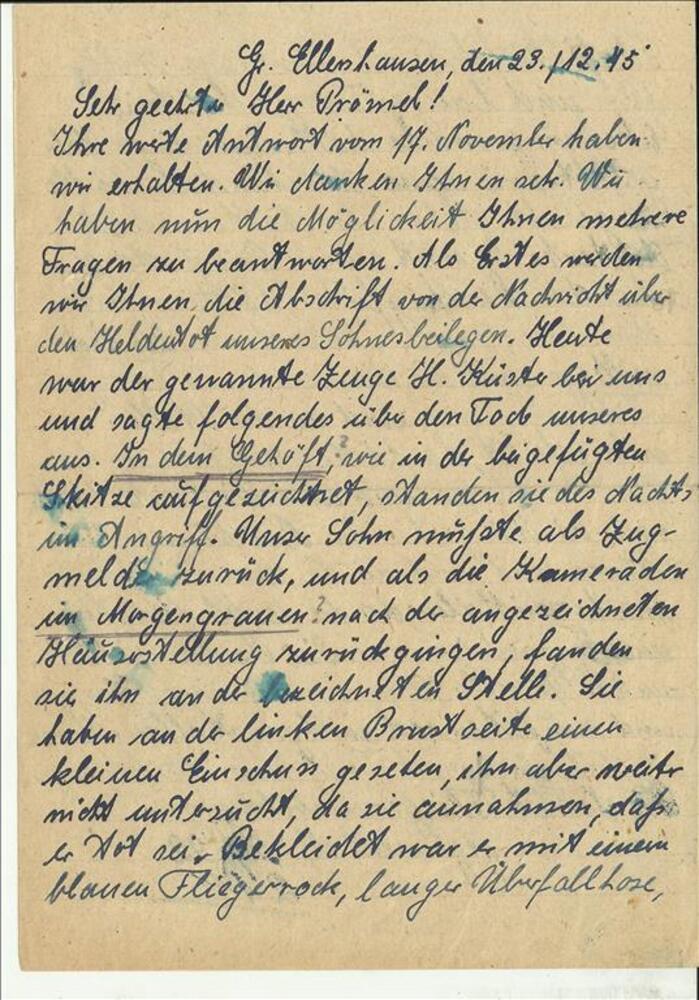 Gr. Ellershausen, den 23./12.45
Sehr geehrter Herr Prömel!
Ihre werte Antwort vom 17. November haben
wir erhalten. Wir danken Ihnen sehr. Wir
haben nun die Möglichkeit Ihnen mehrere
Fragen zu beantworten. Als Erstes werden
wir Ihnen die Abschrift von der Nachricht über
den Heldentot unseres Sohnes beilegen. Heute
war der genannte Zeuge H. Küster bei uns
und sagte folgendes über den Tod unseres
aus. In dem Gehöft,? wie in der beigefügten
Skitze aufgezeichnet, standen sie des Nachts
im Angriff. Unser Sohn mußte als Zug-
melder zurück, und als die Kameraden
im Morgengrauen? nach der angezeichneten
Häuserstellung zurückgingen, fanden
sie ihn an der bezeichneten Stelle. Sie
haben an der linken Brustseite einen
kleinen Einschuss gesehen, ihn aber weiter
nicht untersucht, da sie annahmen, daß
er tot sei. Bekleidet war er mit einem
blauen Fliegerrock, langer Überfallhose,